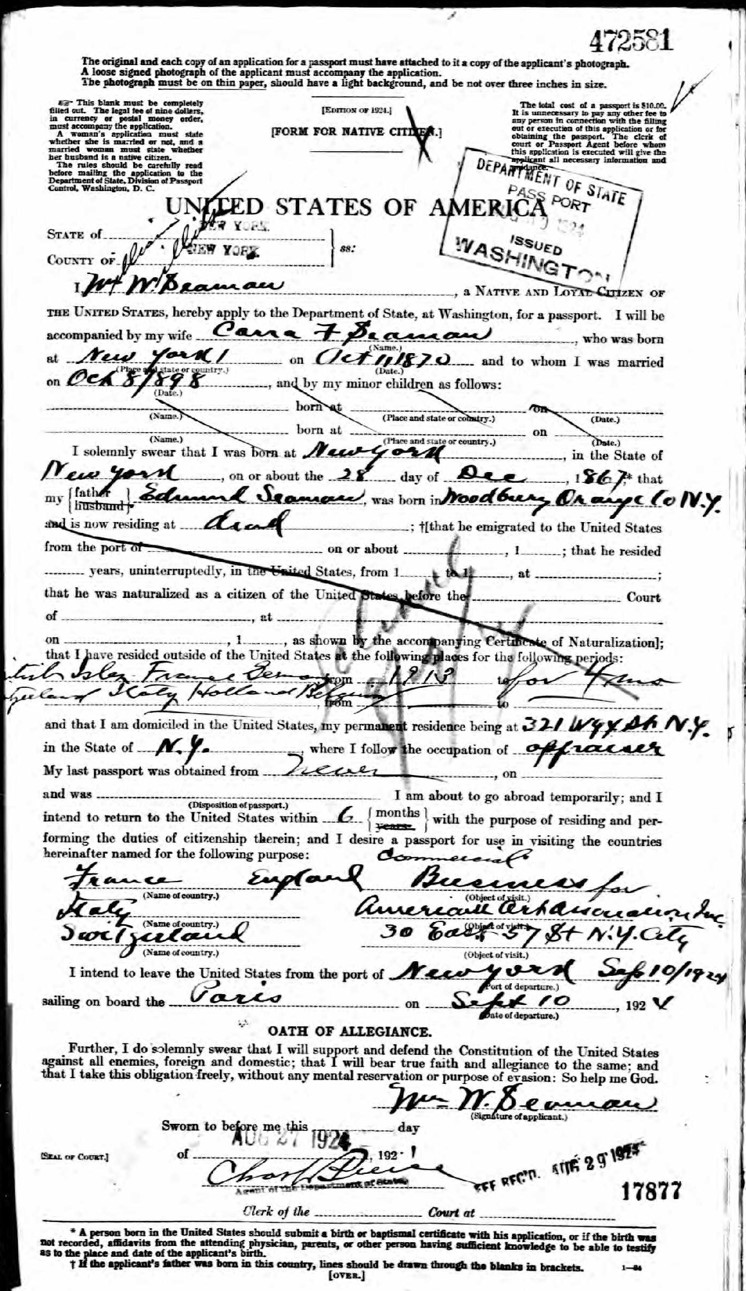 472581
The original and each copy of an application for a passport must have attached to it a copy of the applicant's photograph.
A loose signed photograph of the applicant must accompany the application.
The photograph must be on thin paper, should have a light background, and be not over three inches in size.
This blank must be completely
filled out. The legal fee of nine dollars,
in currency or postal money order,
must accompany the application.
A woman's application must state
whether she is married or not, and a
married woman must state whether
her husband is a native citizen.
The rules should be carefully read
before mailing the application to the
Department of State, Division of Passport
Control, Washington, D. C.
[EDITION OF 1924.]
[FORM FOR NATIVE CITIZEN.]
The total cost of a passport is $10.00.
It is unnecessary to pay any other fee to
any person in connection with the filling
out or execution of this application or for
obtaining the passport. The clerk of
court or Passport Agent before whom
this application is executed will give the
applicant all necessary information and
DEPARTMENT OF STATE
PASSPORT
1924
ISSUED
WASHINGTON
UNITED STATES OF AMERICA
STATE OF NEW YORK
COUNTY OF NEW YORK
ss:
I, Wm W. Seaman, a NATIVE AND LOYAL CITIZEN OF
THE UNITED STATES, hereby apply to the Department of State, at Washington, for a passport. I will be
accompanied by my wife Carra F Seaman, who was born
(Name.)
at New York on Oct 11, 1870 and to whom I was married
(Place and state or country.) (Date.)
on Oct 8/1898, and by my minor children as follows:
(Date.)
born at on
(Name.) (Place and state or country.) (Date.)
born at on
(Name.) (Place and state or country.) (Date.)
I solemnly swear that I was born at New York, in the State of
New York, on or about the 28 day of Dec, 1867,* that
my {father husband} Edmund Seaman, was born in Woodbury Orange Co N.Y.
and is now residing at dead; †[that he emigrated to the United States
from the port of on or about , 1 ; that he resided
years, uninterruptedly, in the United States, from 1 to 1 , at ;
that he was naturalized as a citizen of the United States before the Court
of , at
on , 1 , as shown by the accompanying Certificate of Naturalization];
that I have resided outside of the United States at the following places for the following periods:
Isles France from 1913 to for 4 mo
Italy Holland Belgium from to
and that I am domiciled in the United States, my permanent residence being at 321 W 94 St N.Y.
in the State of N.Y., where I follow the occupation of appraiser
My last passport was obtained from never, on
and was I am about to go abroad temporarily; and I
(Disposition of passport.)
intend to return to the United States within 6 {months years} with the purpose of residing and per-
forming the duties of citizenship therein; and I desire a passport for use in visiting the countries
hereinafter named for the following purpose: Commercial
France England Business for
(Name of country.) (Object of visit.)
Italy American Art Association Inc
(Name of country.) (Object of visit.)
Switzerland 30 East 57 St N.Y. City
(Name of country.) (Object of visit.)
I intend to leave the United States from the port of New York Sep 10/1924
(Port of departure.)
sailing on board the Paris on Sept 10, 1924
(Date of departure.)
OATH OF ALLEGIANCE.
Further, I do solemnly swear that I will support and defend the Constitution of the United States
against all enemies, foreign and domestic; that I will bear true faith and allegiance to the same; and
that I take this obligation freely, without any mental reservation or purpose of evasion: So help me God.
Wm W. Seaman
(Signature of applicant.)
Sworn to before me this day
AUG 27 1924
of , 192
[SEAL OF COURT.]
Agent of the Department of State
FEE REC'D. AUG 29 1924
17877
Clerk of the Court at
* A person born in the United States should submit a birth or baptismal certificate with his application, or if the birth was
not recorded, affidavits from the attending physician, parents, or other person having sufficient knowledge to be able to testify
as to the place and date of the applicant's birth.
† If the applicant's father was born in this country, lines should be drawn through the blanks in brackets.
[OVER.]